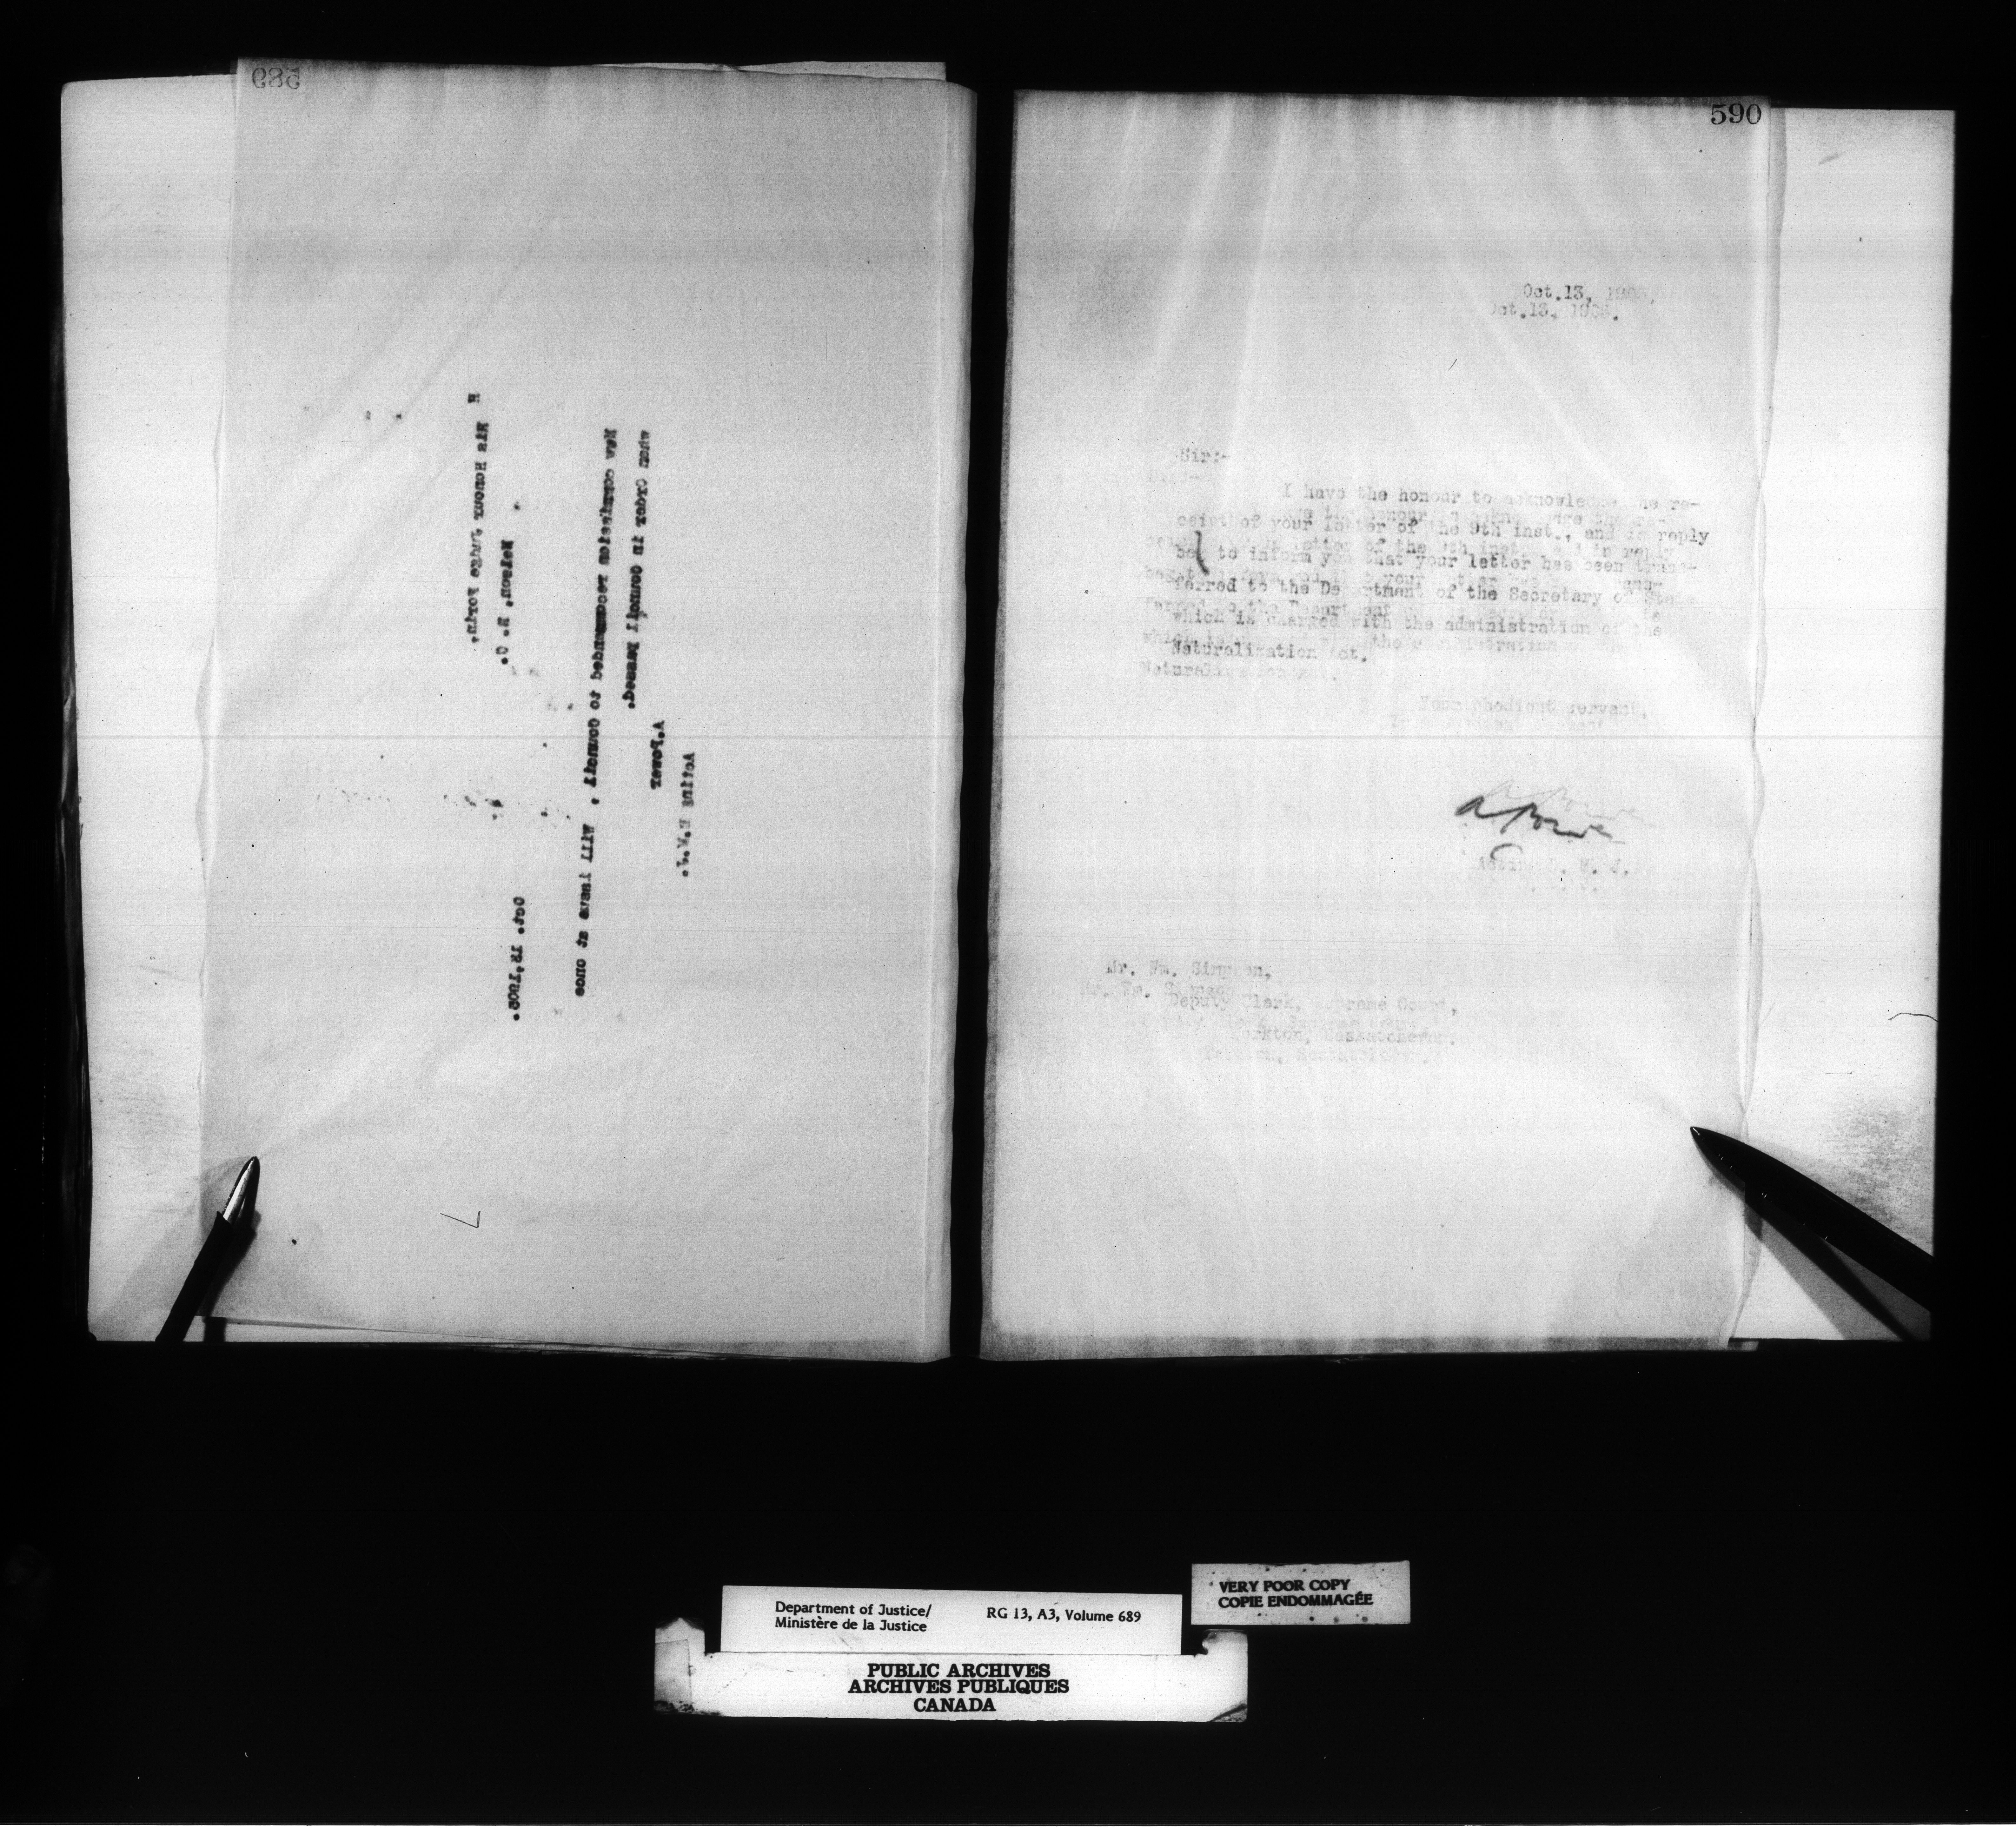 589
Oct. 13, 1905.
H His Honour Judge Forin.
Nelson, B. C.
New commission recommended to Council . Will issue at once
when Order in Council passed.
A.Power
Acting D.M.J.
590
Oct.13,
Oct.13,
Sir:-
I have the honour to acknowledge the re-
ceipt of your letter of the 9th inst., and in reply
beg to inform you that your letter has been trans-
ferred to the Department of the Secretary of State
which is charged with the administration of the
Naturalization Act.
Your obedient servant,
A Power
Acting D. M. J.
Mr. Wm. Simpson,
Deputy Clerk, Supreme Court,
Yorkton, Saskatchewan.
VERY POOR COPY
COPIE ENDOMMAGÉE
Department of Justice/
Ministère de la Justice
RG 13, A3, Volume 689
PUBLIC ARCHIVES
ARCHIVES PUBLIQUES
CANADA